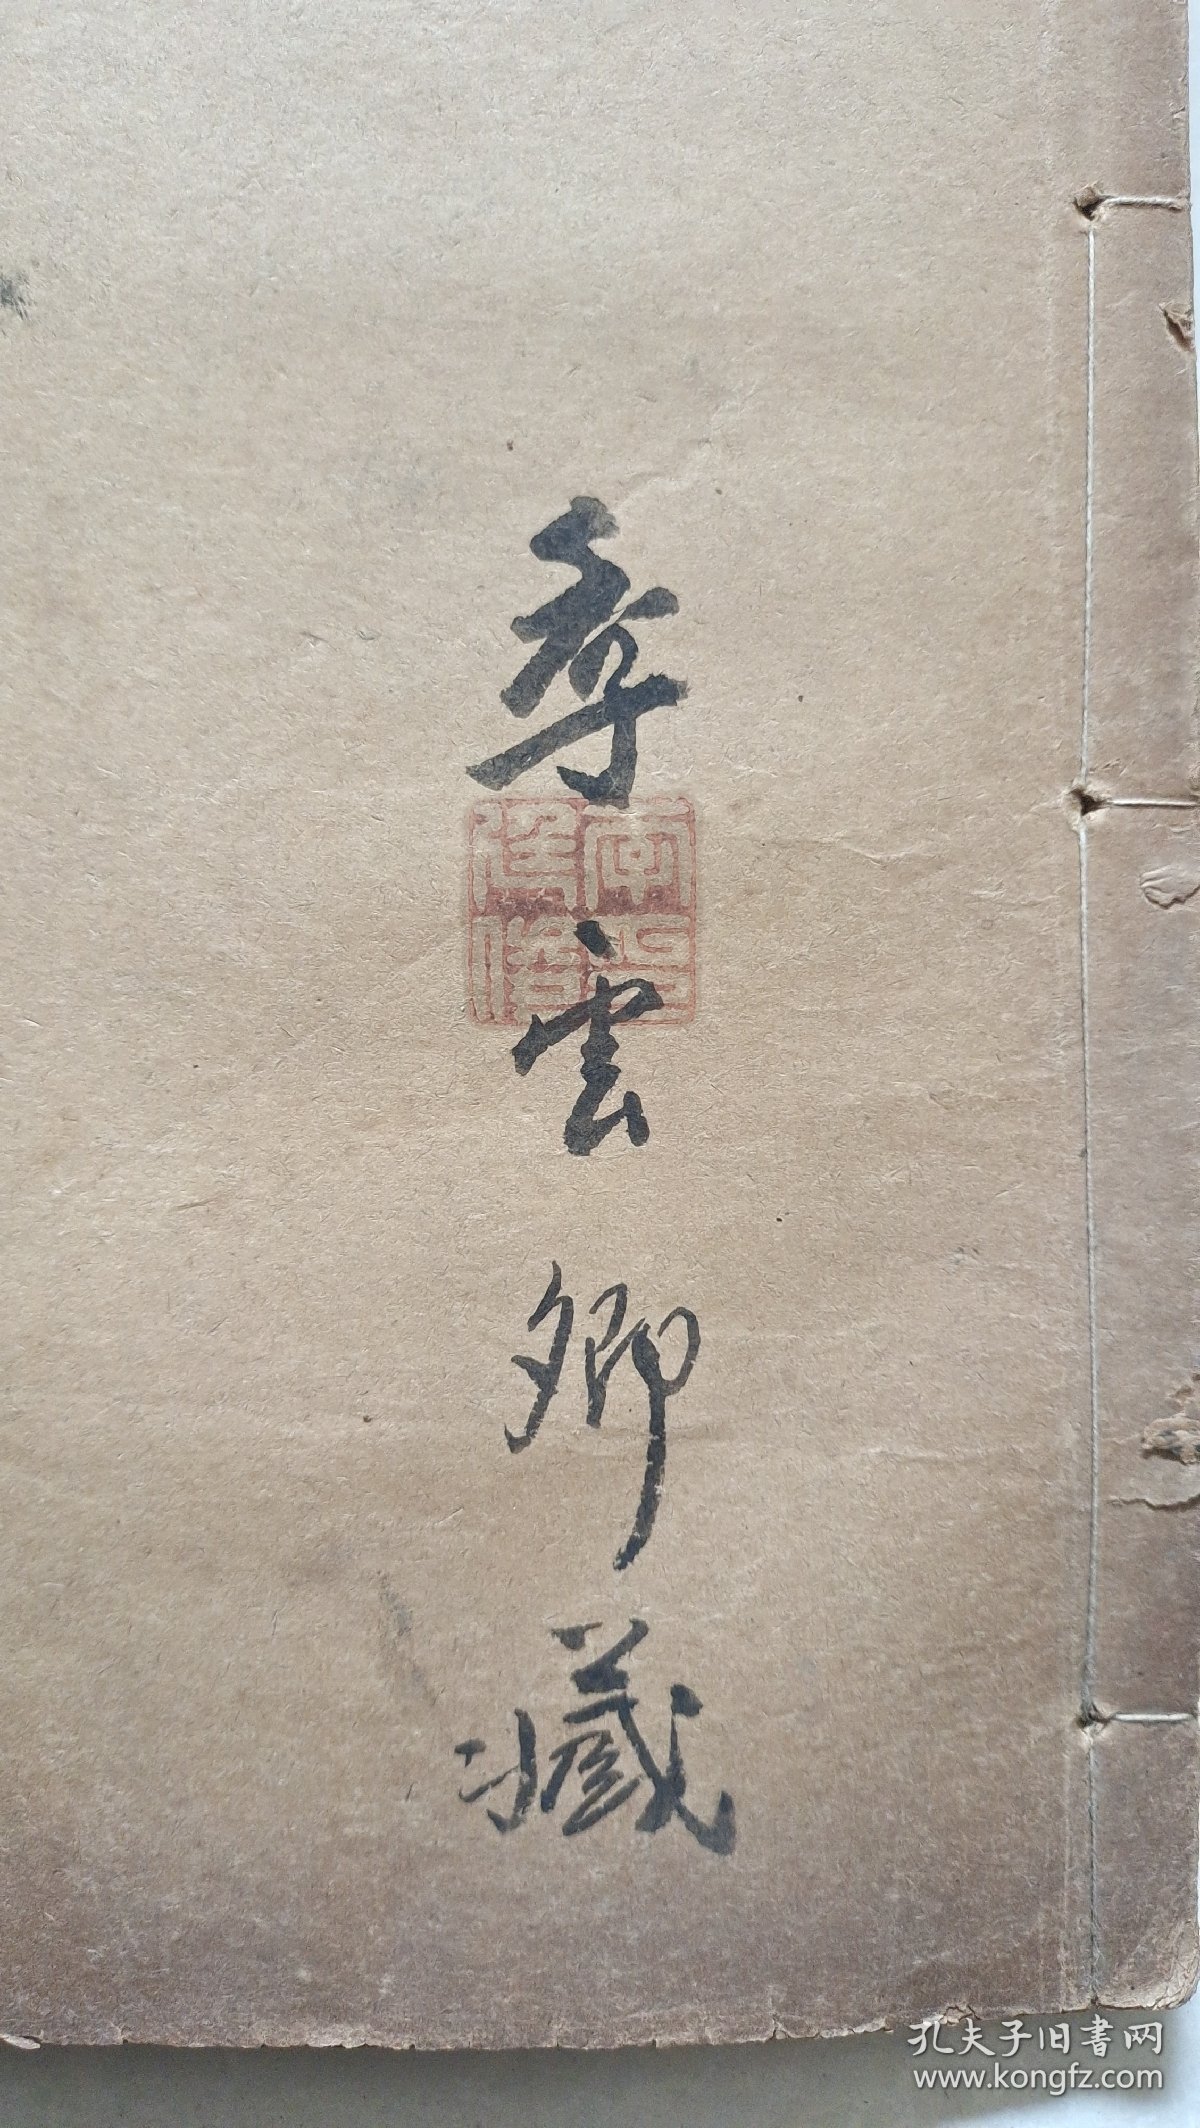 季雲卿藏
孔夫子旧書网
www.kongfz.com